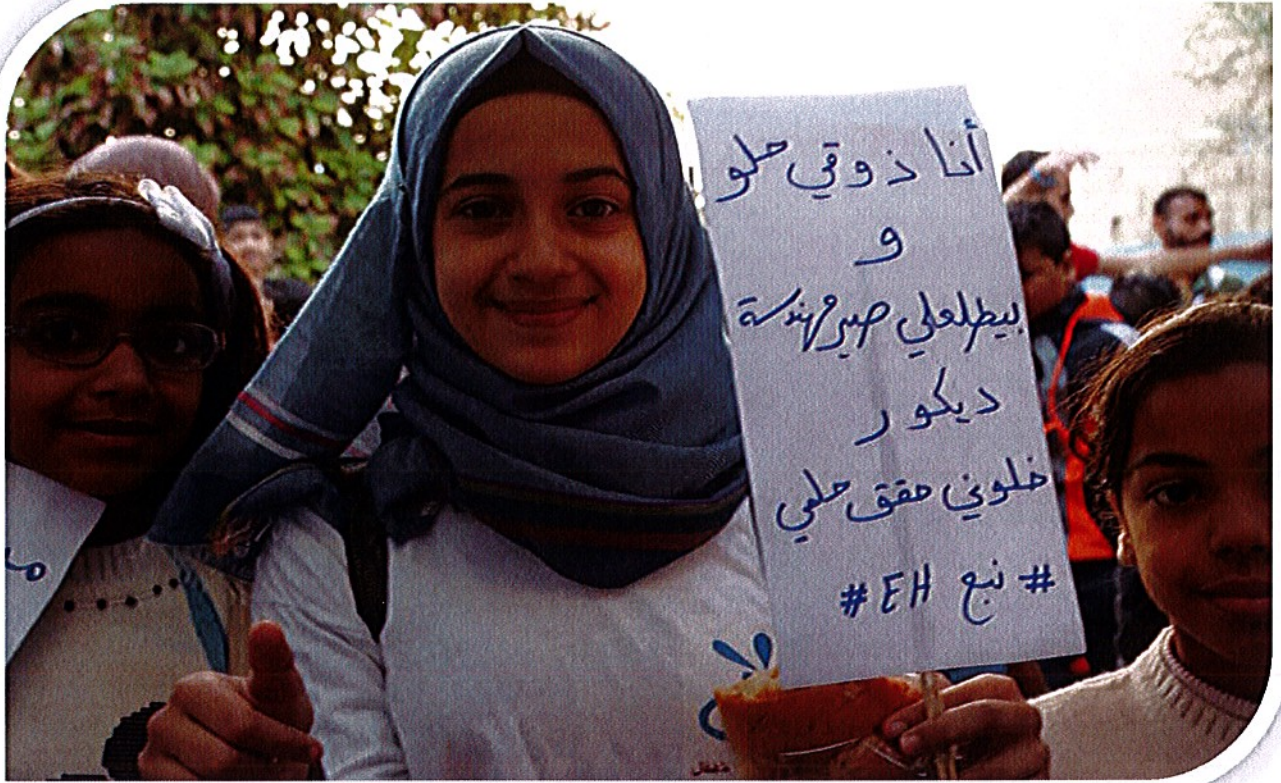 أنا ذوقي حلو
و
بيطلعلي صير مهندسة
ديكور
خلوني حقق حلمي
# نبع EH #